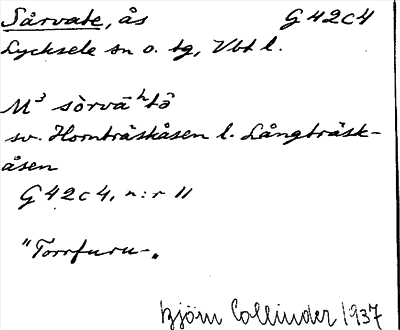 Sårvate, ås G 42 c 4
Lycksele sn o. tg, Vbt l.
M³ sòrvāʰtȯ
sv. Hornträskåsen l. Långträsk-
åsen
G 42 c 4, n:r 11
"Torrfuru-"
Björn Collinder 1937